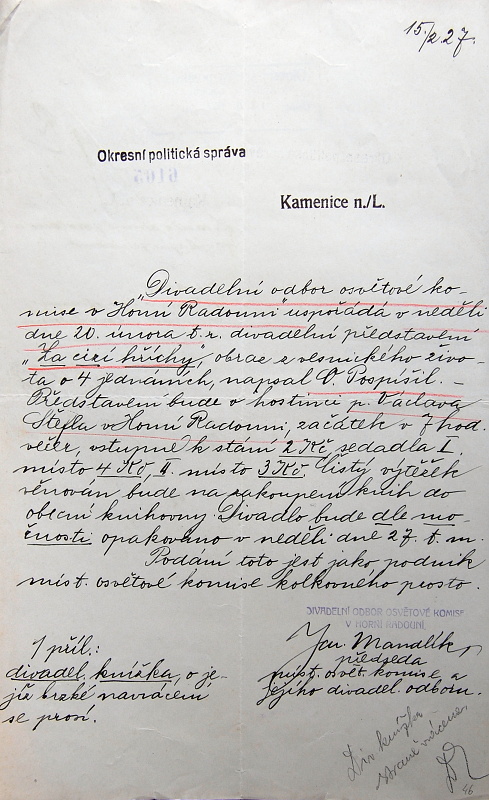 15./2.27.
Okresní politická správa
Kamenice n./L.
„Divadelní odbor osvětové ko-
mise v Horní Radouni" uspořádá v neděli
dne 20. února t. r. divadelní představení
„Za cizí hříchy", obraz z vesnického živo-
ta o 4 jednáních, napsal O. Pospíšil. -
Představení bude v hostinci p. Václava
Štefla v Horní Radouni, začátek v 7 hod.
večer, vstupné k stání 2 Kč, sedadla I.
místo 4 Kč, II. místo 3 Kč. Čistý výtěžek
věnován bude na zakoupení knih do
obecní knihovny. Divadlo bude dle mo-
žnosti opakováno v neděli dne 27. t. m.
Podání toto jest jako podnik
míst. osvětové komise kolkovného prosto.
DIVADELNÍ ODBOR OSVĚTOVÉ KOMISE
V HORNÍ RADOUNI
Jan Mandlík,
předseda
míst. osvět. komise a
jejího divadel. odboru.
1 příl.:
divadel. knížka, o je-
jíž brzké navrácení
se prosí.
Div. knížka
straně vrácena
46